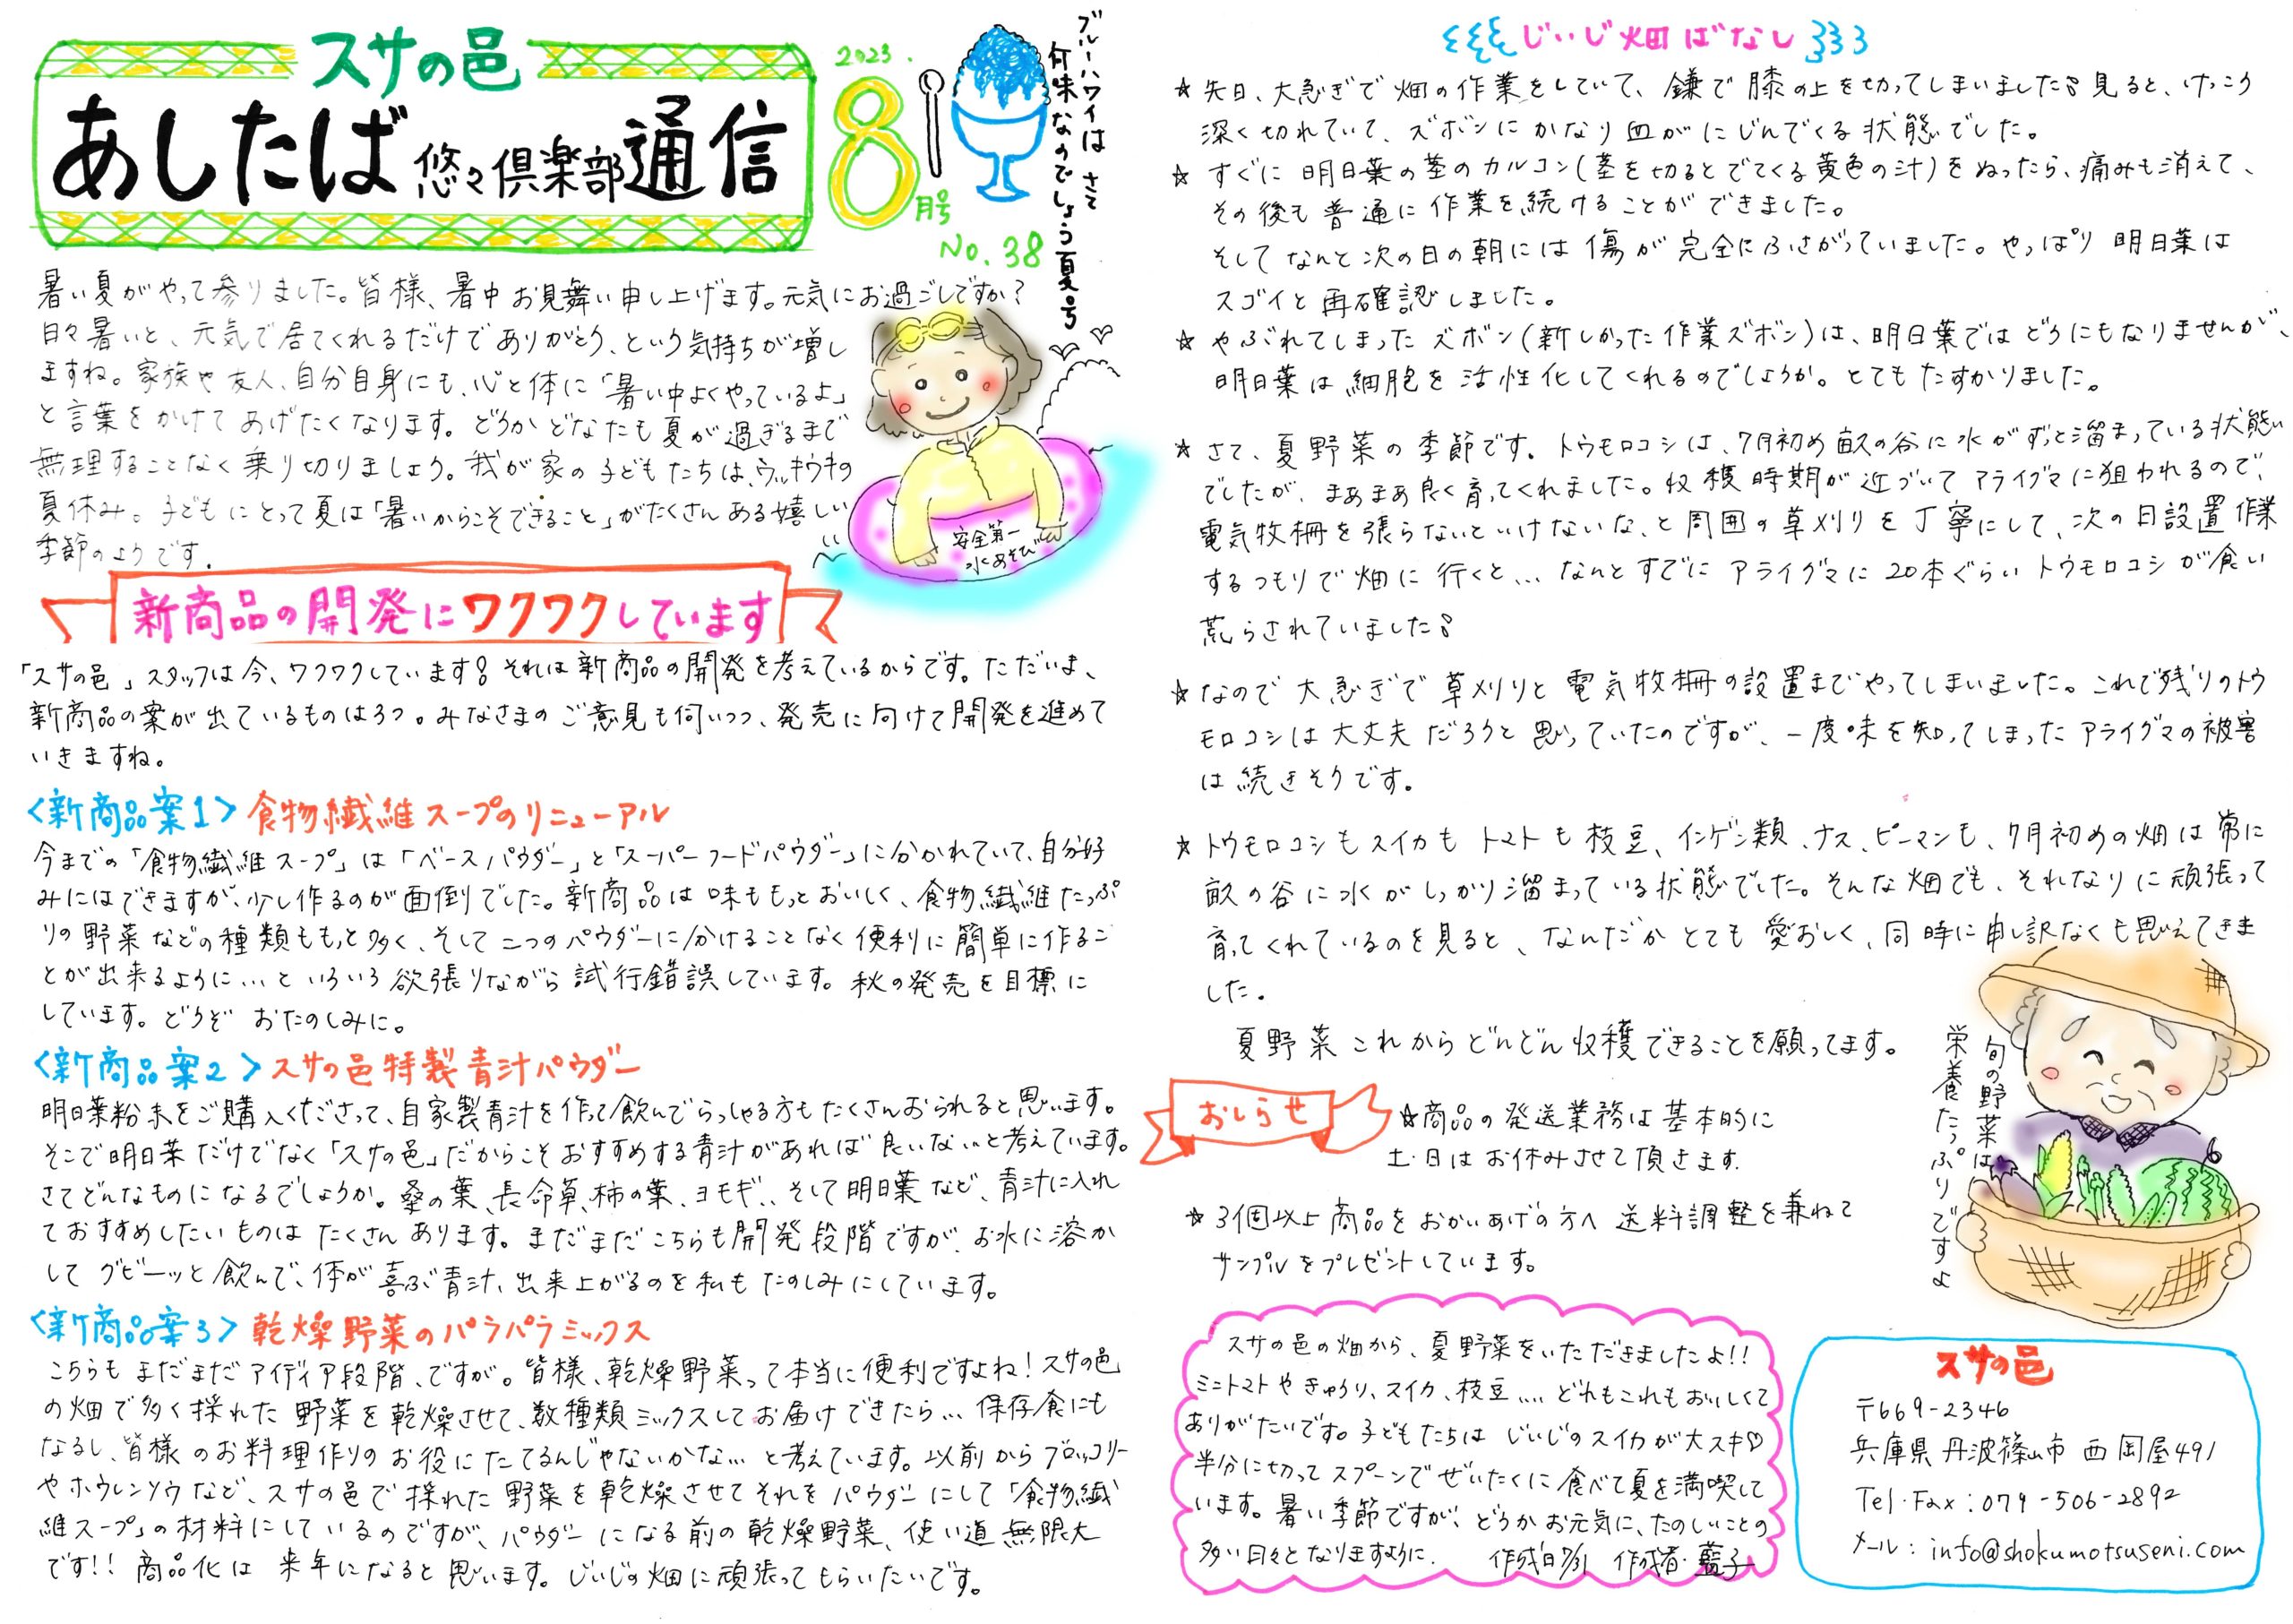 スサの邑
あしたば悠々倶楽部通信
2023.
8
月号
No.38
ブルーハワイは さて
何味なのでしょう夏号
暑い夏がやって参りました。皆様、暑中お見舞い申し上げます。元気にお過ごしですか?
日々暑いと、元気で居てくれるだけでありがとう、という気持ちが増し
ますね。家族や友人、自分自身にも、心と体に「暑い中よくやっているよ」
と言葉をかけてあげたくなります。どうかどなたも夏が過ぎるまで
無理することなく乗り切りましょう。我が家の子どもたちは、ウッキウキの
夏休み。子どもにとって夏は「暑いからこそできること」がたくさんある嬉しい
季節のようです.
安全第一
水あそび
新商品の開発にワクワクしています
「スサの邑」スタッフは今、ワクワクしています! それは新商品の開発を考えているからです。ただいま、
新商品の案が出ているものは3つ。みなさまのご意見も伺いつつ、発売に向けて開発を進めて
いきますね。
<新商品案1> 食物繊維スープのリニューアル
今までの「食物繊維スープ」は「ベースパウダー」と「スーパーフードパウダー」に分かれていて、自分好
みにはできますが、少し作るのが面倒でした。新商品は味ももっとおいしく、食物繊維たっぷ
りの野菜などの種類ももっと多く、そして二つのパウダーに分けることなく便利に簡単に作るこ
とが出来るように…といろいろ欲張りながら試行錯誤しています。秋の発売を目標に
しています。どうぞ おたのしみに。
<新商品案2> スサの邑特製青汁パウダー
明日葉粉末をご購入くださって、自家製青汁を作って飲んでらっしゃる方もたくさんおられると思います。
そこで明日葉だけでなく「スサの邑」だからこそおすすめする青汁があれば良いな…と考えています。
さてどんなものになるでしょうか。桑の葉、長命草、柿の葉、ヨモギ、、そして明日葉など、青汁に入れ
ておすすめしたいものはたくさんあります。まだまだこちらも開発段階ですが、お水に溶か
してグビーッと飲んで、体が喜ぶ青汁、出来上がるのを私もたのしみにしています。
<新商品案3> 乾燥野菜のパラパラミックス
こちらもまだまだアイディア段階、ですが。皆様、乾燥野菜って本当に便利ですよね! スサの邑
の畑で多く採れた野菜を乾燥させて、数種類ミックスしてお届けできたら… 保存食にも
なるし、皆様のお料理作りのお役にたてるんじゃないかな… と考えています。以前からブロッコリー
やホウレンソウなど、スサの邑で採れた野菜を乾燥させてそれをパウダーにして「食物繊
維スープ」の材料にしているのですが、パウダーになる前の乾燥野菜、使い道無限大
です!! 商品化は来年になると思います。じいじの畑に頑張ってもらいたいです。
じいじ畑ばなし
☆ 先日、大急ぎで畑の作業をしていて、鎌で膝の上を切ってしまいました! 見ると、けっこう
深く切れていて、ズボンにかなり血がにじんでくる状態でした。
☆ すぐに明日葉の茎のカルコン(茎を切るとでてくる黄色の汁)をぬったら、痛みも消えて、
その後も普通に作業を続けることができました。
そしてなんと次の日の朝には傷が完全にふさがっていました。やっぱり明日葉は
スゴイと再確認しました。
☆ やぶれてしまったズボン(新しかった作業ズボン)は、明日葉ではどうにもなりませんが、
明日葉は細胞を活性化してくれるのでしょうか。とてもたすかりました。
☆ さて、夏野菜の季節です。トウモロコシは、7月初め畝の谷に水がずっと溜まっている状態
でしたが、まあまあ良く育ってくれました。収穫時期が近づいてアライグマに狙われるので、
電気牧柵を張らないといけないな、と周囲の草刈りを丁寧にして、次の日設置作業
するつもりで畑に行くと… なんとすでにアライグマに20本ぐらいトウモロコシが食い
荒らされていました!
☆ なので大急ぎで草刈りと電気牧柵の設置までやってしまいました。これで残りのトウ
モロコシは大丈夫だろうと思っていたのですが、一度味を知ってしまったアライグマの被害
は続きそうです。
☆ トウモロコシもスイカもトマトも枝豆、インゲン類、ナス、ピーマンも、7月初めの畑は常に
畝の谷に水がしっかり溜まっている状態でした。そんな畑でも、それなりに頑張って
育ってくれているのを見ると、なんだかとても愛おしく、同時に申し訳なくも思えてきま
した.
夏野菜これからどんどん収穫できることを願ってます。
旬の野菜は
栄養たっぷりですよ
おしらせ
☆商品の発送業務は基本的に
土・日はお休みさせて頂きます.
☆ 3個以上商品をおかいあげの方へ送料調整を兼ねて
サンプルをプレゼントしています。
スサの邑の畑から、夏野菜をいただきましたよ!!
ミニトマトやきゅうり、スイカ、枝豆… どれもこれもおいしくて
ありがたいです。子どもたちはじいじのスイカが大スキ♡
半分に切ってスプーンでぜいたくに食べて夏を満喫して
います。暑い季節ですが、どうかお元気に、たのしいことの
多い日々となりますように. 作成日7/31 作成者・藍子
スサの邑
〒669-2346
兵庫県丹波篠山市西岡屋491
Tel・Fax:079-506-2892
メール: info@shokumotsuseni.com